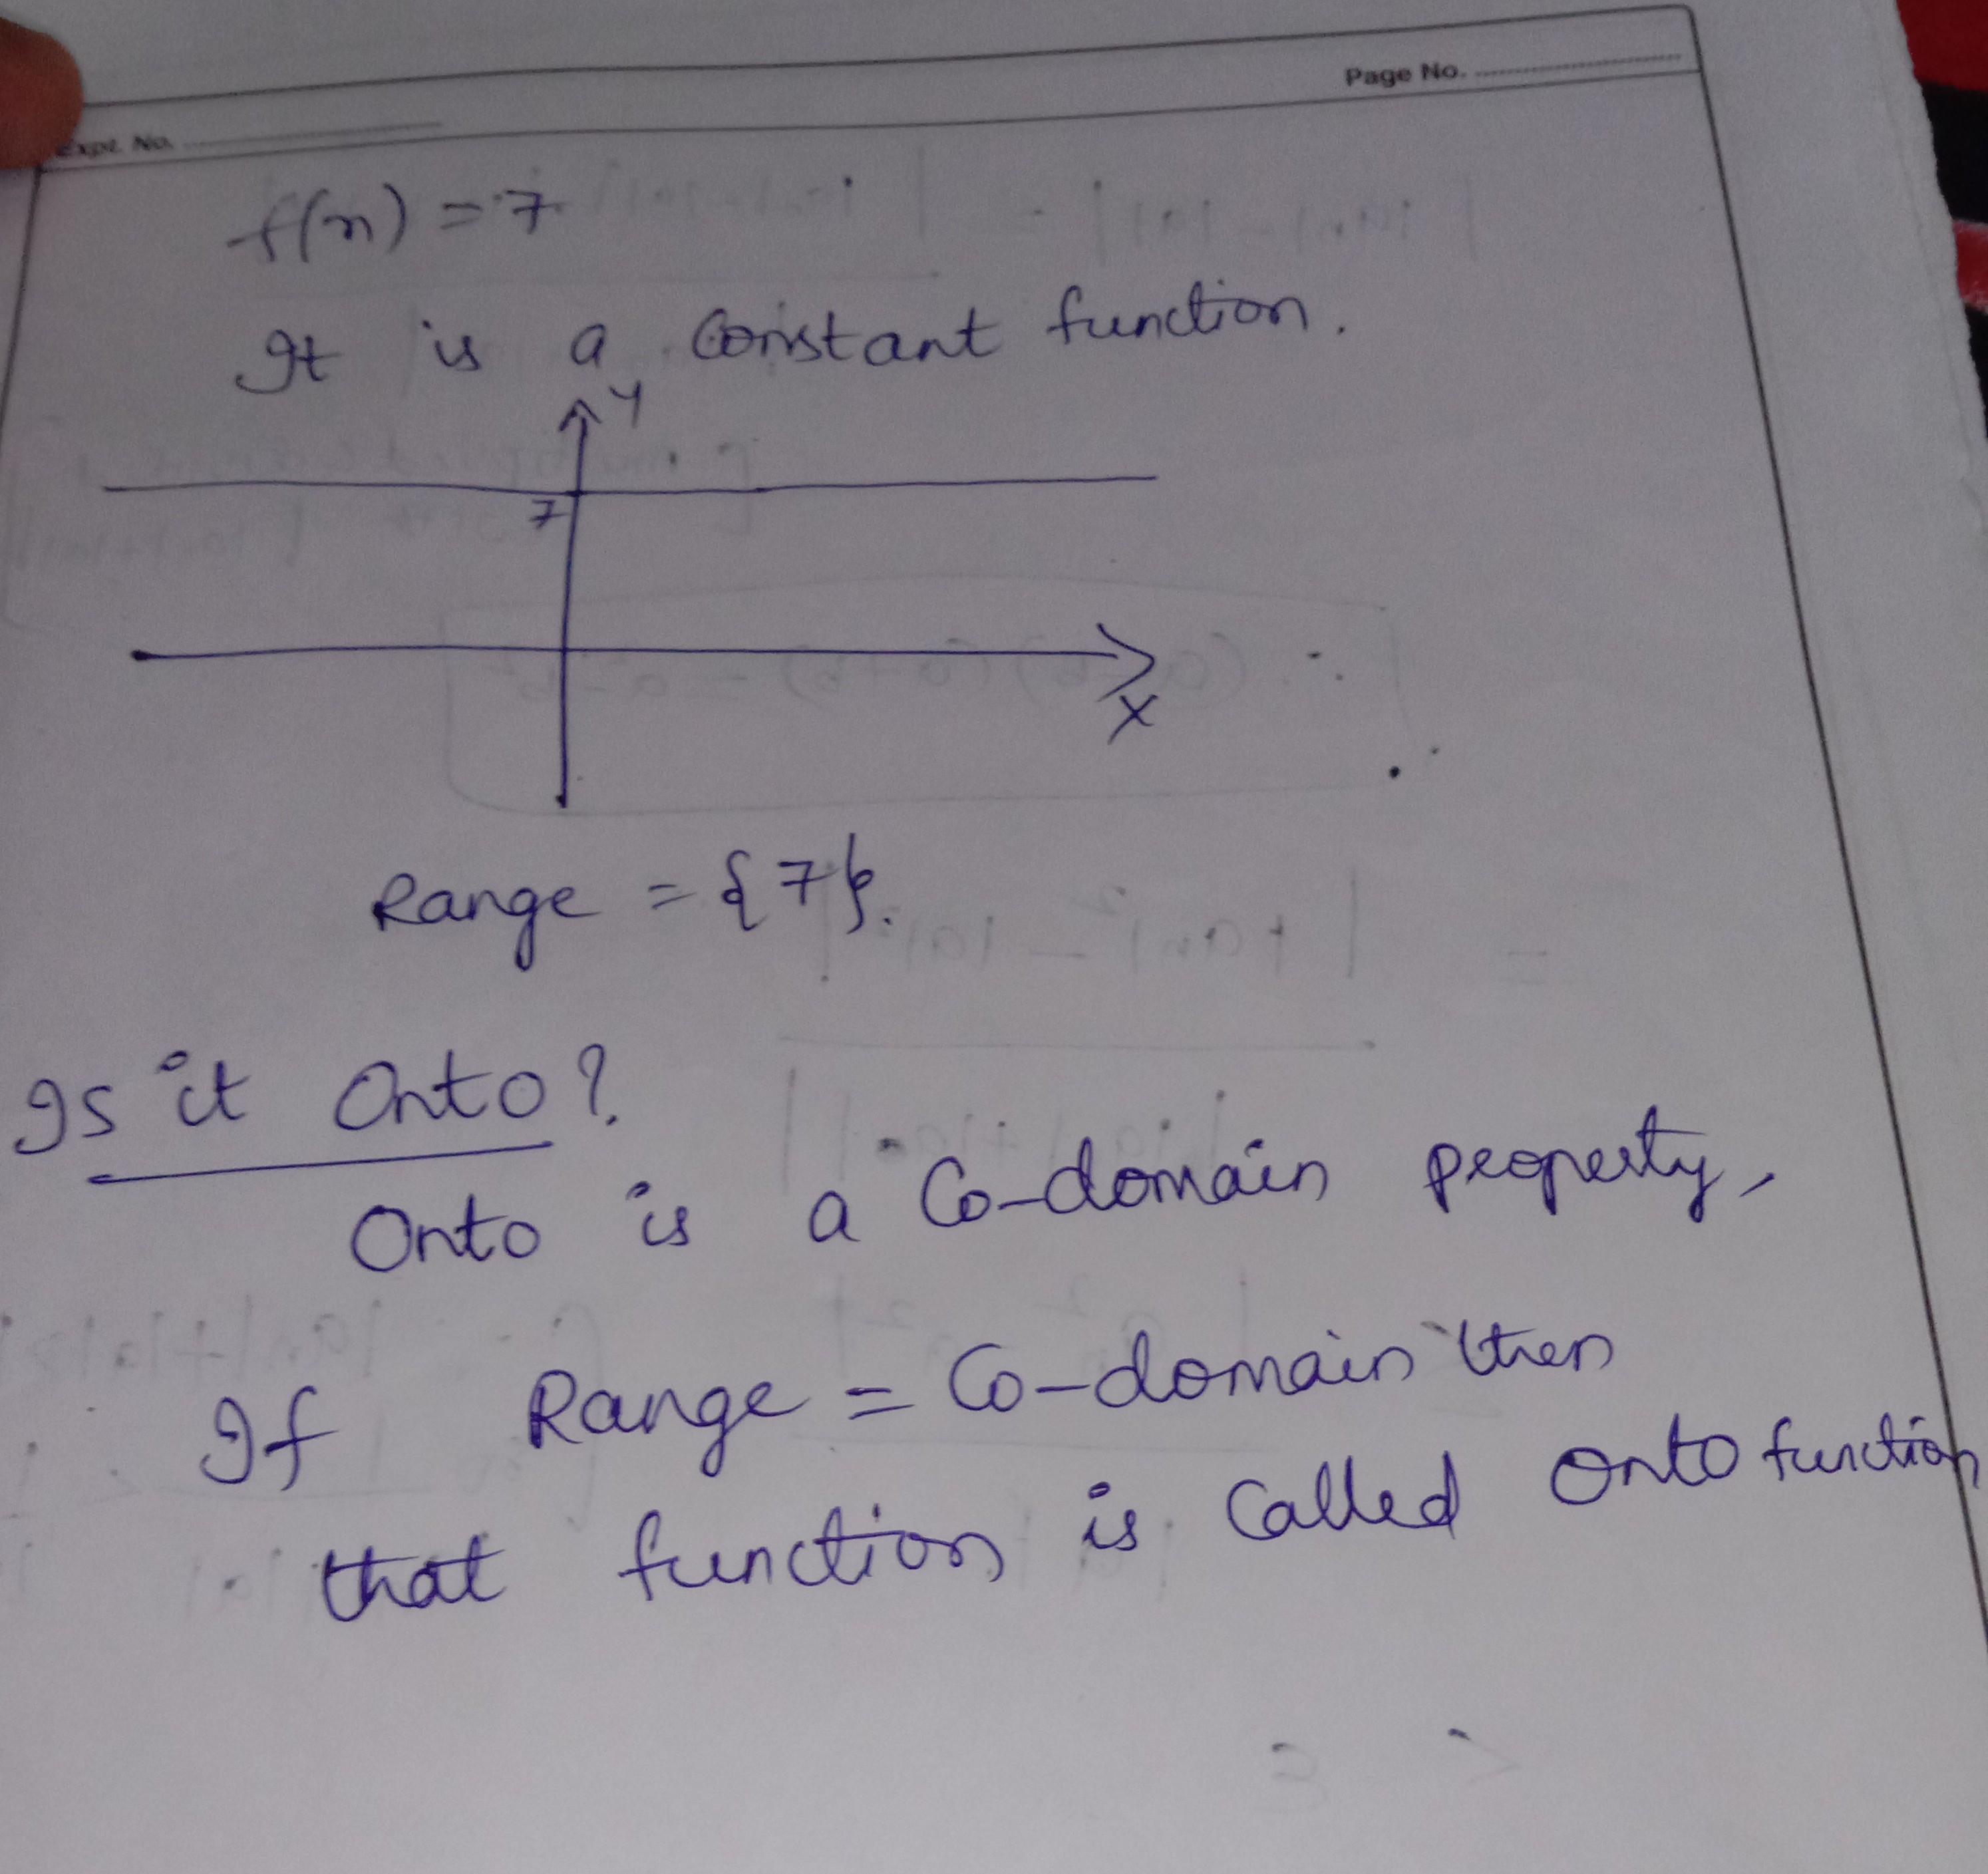 Page No.
Expt. No.
f(n) = 7
It is a constant function.
Y
7
X
Range = {7}.
Is it Onto?
Onto is a Co-domain property,
If Range = Co-domain then
that function is called onto function